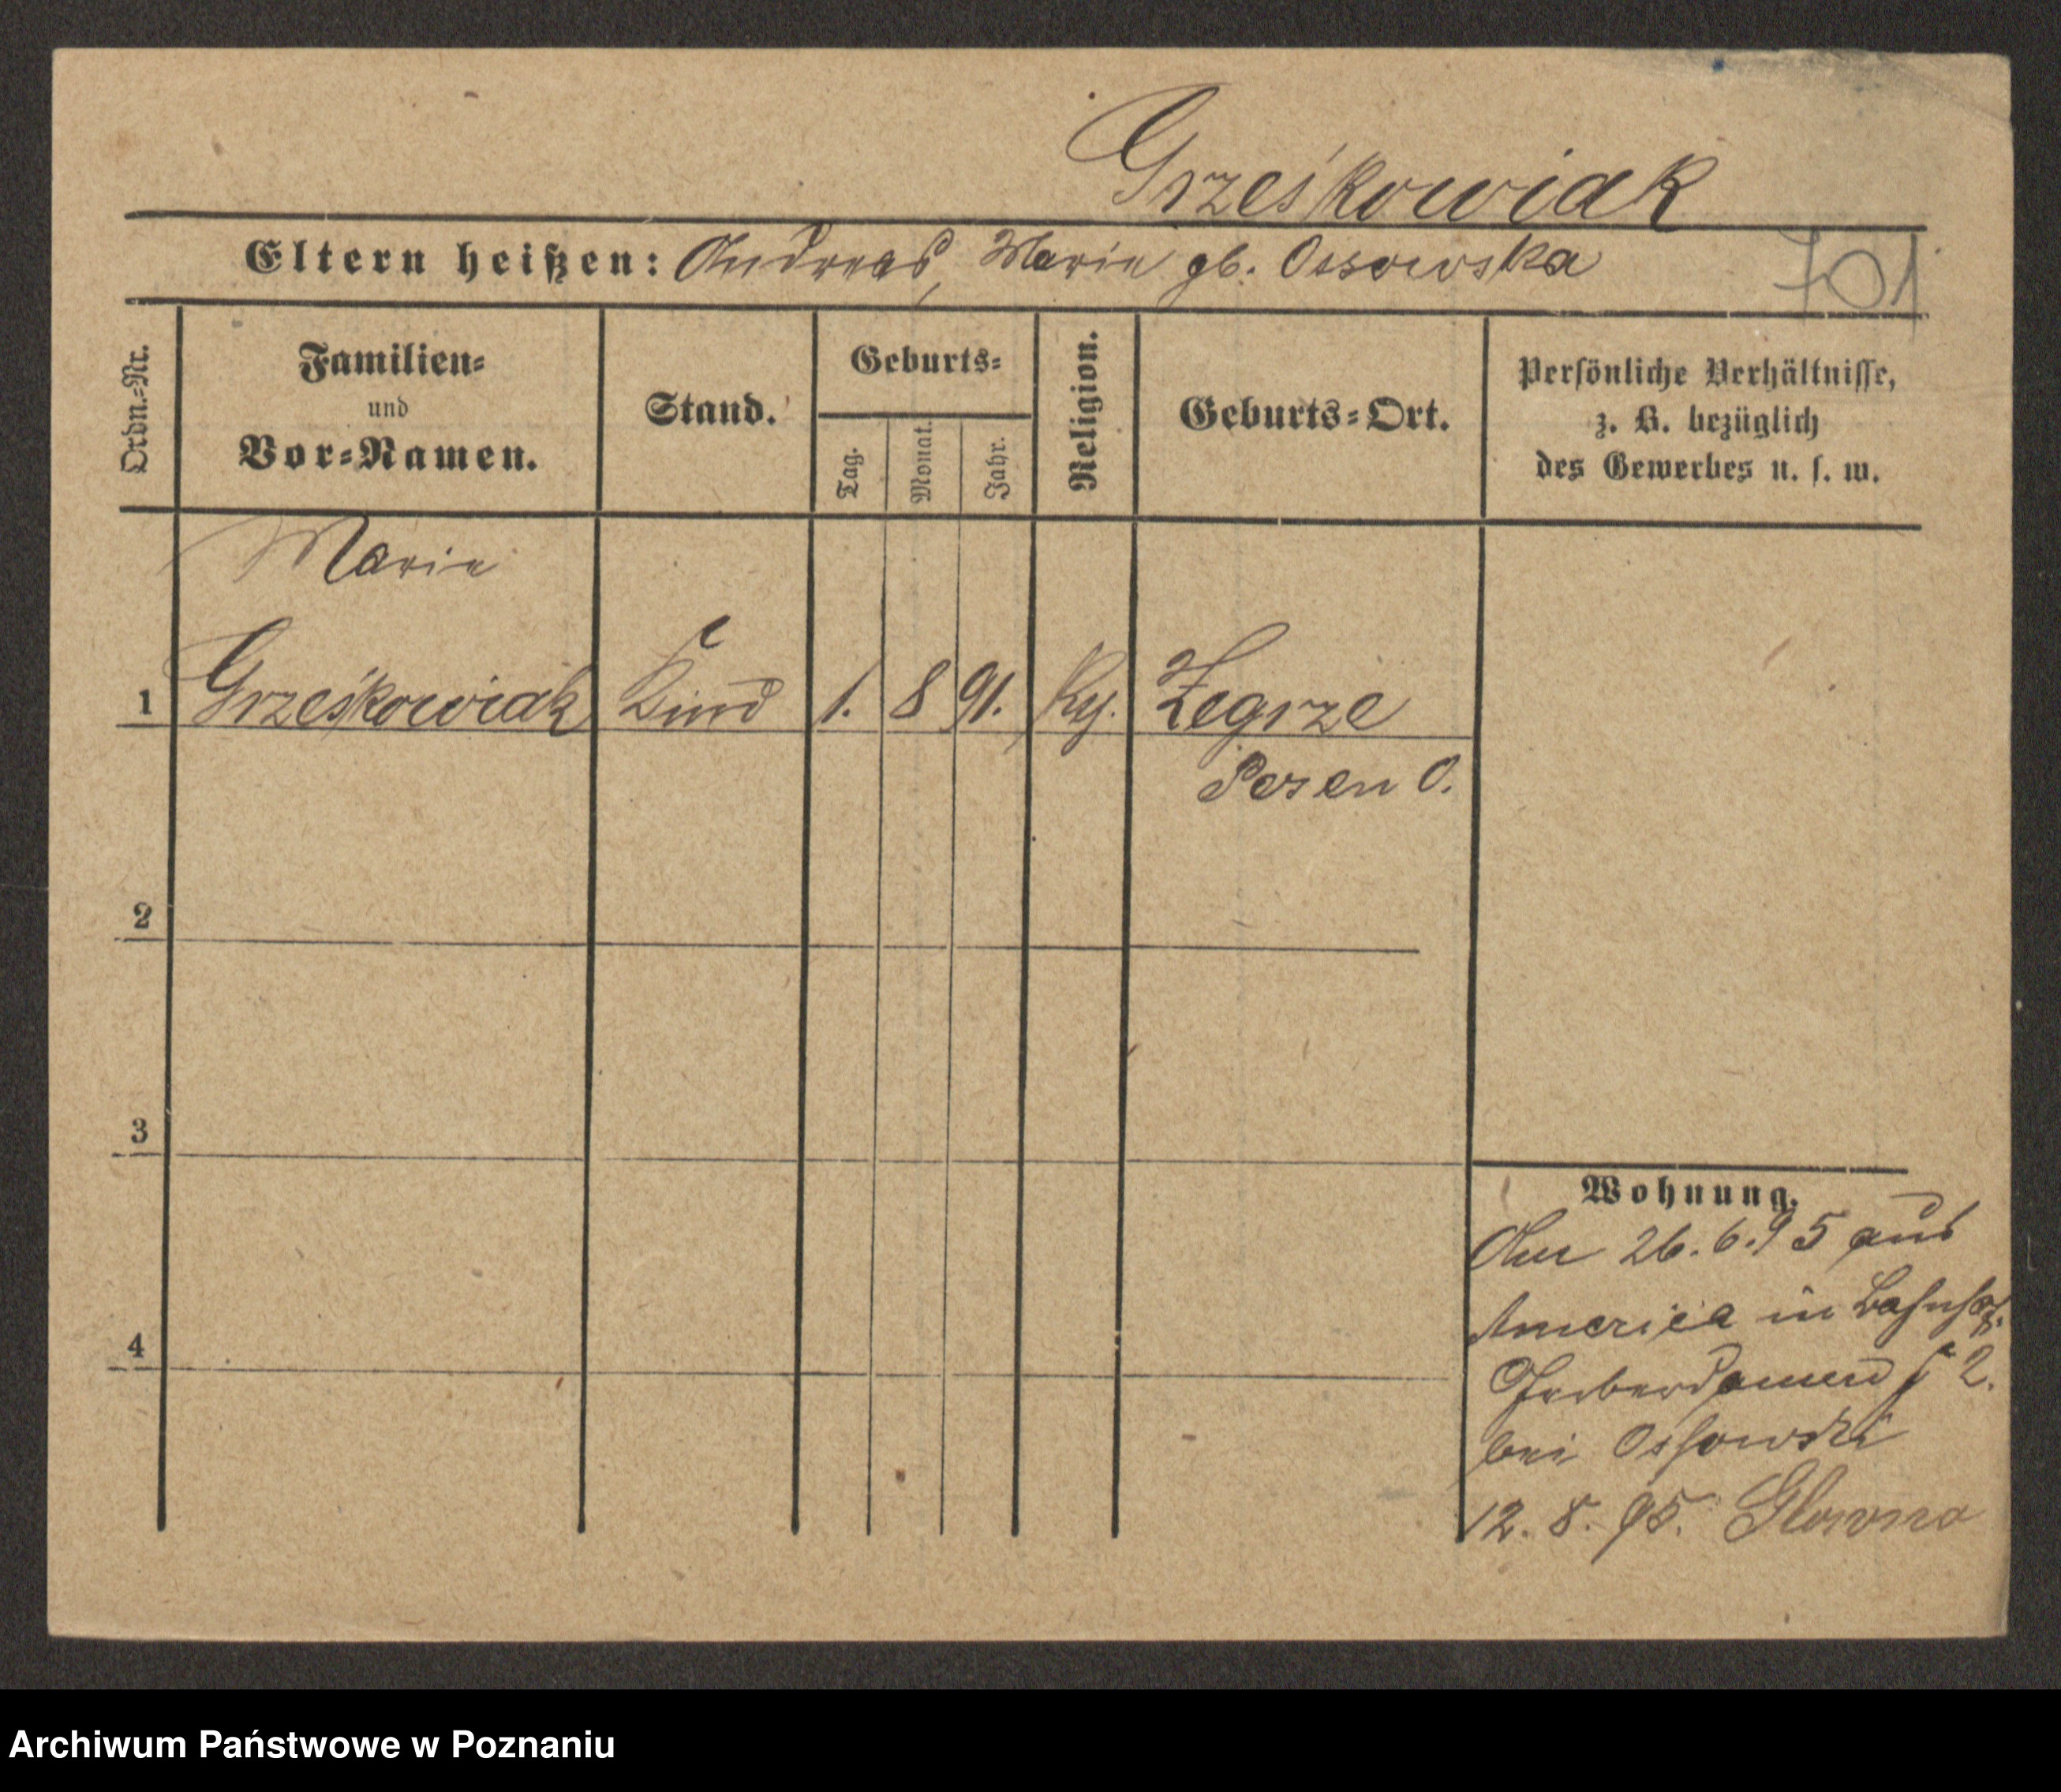 Grześkowiak
Eltern heißen: Andreas, Marie gb. Ossowska
701
Ordn.=Nr.
Familien=
und
Vor=Namen.
Stand.
Geburts=
Tag.
Monat.
Jahr.
Religion.
Geburts=Ort.
Persönliche Verhältnisse,
z. B. bezüglich
des Gewerbes u. s. w.
Marie
1 Grześkowiak Kind 1. 8 91. Żegrze
Posen O.
2
3
4
Wohnung.
Am 26.6.95 aus
America in Bahnhof
2.
bei Ossowski
12. 8. 95. Glowno
Archiwum Państwowe w Poznaniu